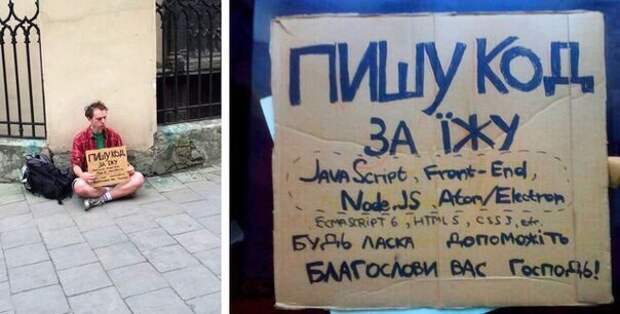 ПИШУ КОД
ЗА ЇЖУ
ПИШУ КОД
ЗА ЇЖУ
JAVAScript, Front-End,
Node.JS, Atom/Electron
ECMASCRIPT 6, HTML5, CSS3, etc.
БУДЬ ЛАСКА ДОПОМОЖІТЬ
БЛАГОСЛОВИ ВАС ГОСПОДЬ!